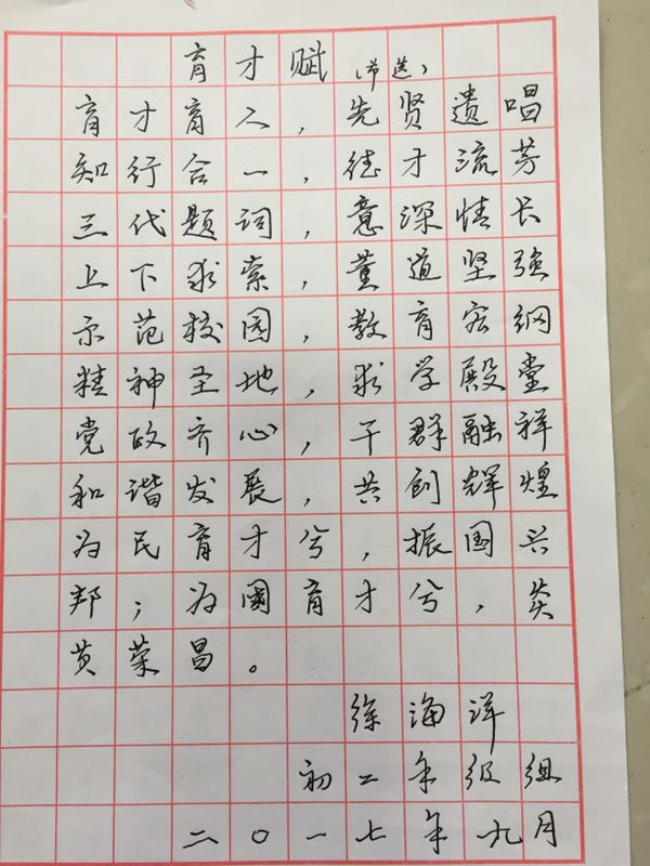 育才赋（节选）
育才育人，先贤遗唱
知行合一，德才流芳
三代题词，意深情长
上下求索，黄道坚强
示范校园，教育宏纲
精神圣地，求学殿堂
党政齐心，干群融祥
和谐发展，共创辉煌
为民育才兮，振国兴
邦；为國育才兮，炎
黄荣昌。
徐海洋
初二年级组
二〇一七年九月